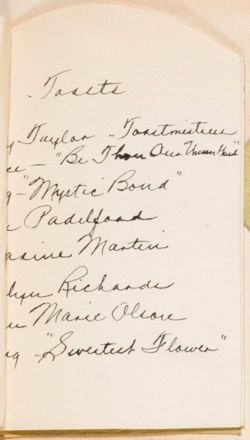 Toasts
y Taylor - Toastmistress
ce - "Be Thou Our Unseen Guest"
g - "Mystic Bond"
Padelford
asine Martin
lyn Richards
Marie Olson
ng "Sweetest Flower"